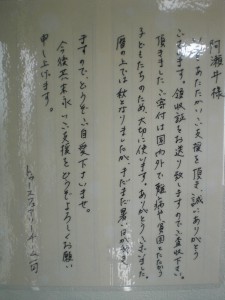 阿瀬斗様
いつもあたたかいご支援を頂き、誠にありがとう
ございます。領収証をお送り致しますのでご査収下さい。
頂きましたご寄付は国内外で難病や貧困とたたかう
子どもたちのため、大切に使います。ありがとうございました。
暦の上では秋となりましたが、まだまだ暑い日が続き
ますので、どうぞご自愛下さいませ。
今後共末永いご支援をどうぞよろしくお願い
申し上げます。